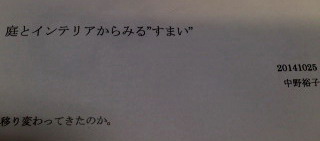 庭とインテリアからみる”すまい”
20141025
中野裕子
移り変わってきたのか。